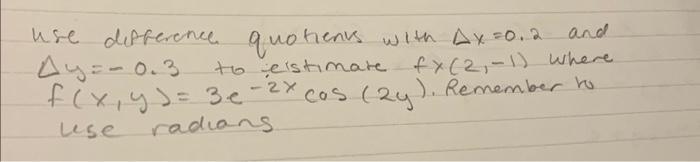 use difference quotiens with Δx=0.2 and
Δy=-0.3 to estimate fx(2,-1) where
f(x,y)=3e^-2x cos(2y). Remember to
use radians